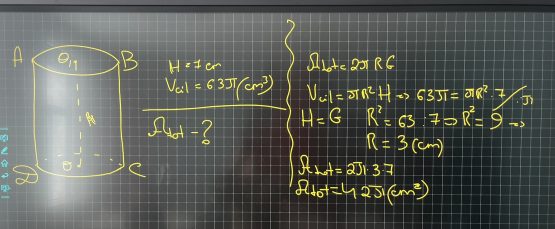 A B
O₁
H
O
D C
H = 7 cm
Vcil = 63π (cm³)
Atot - ?
Atot = 2πRG
Vcil = πR²H => 63π = πR². 7 / :π
H = G R² = 63 : 7 => R² = 9 =>
R = 3 (cm)
Atot = 2π. 3.7
Atot = 42π (cm²)